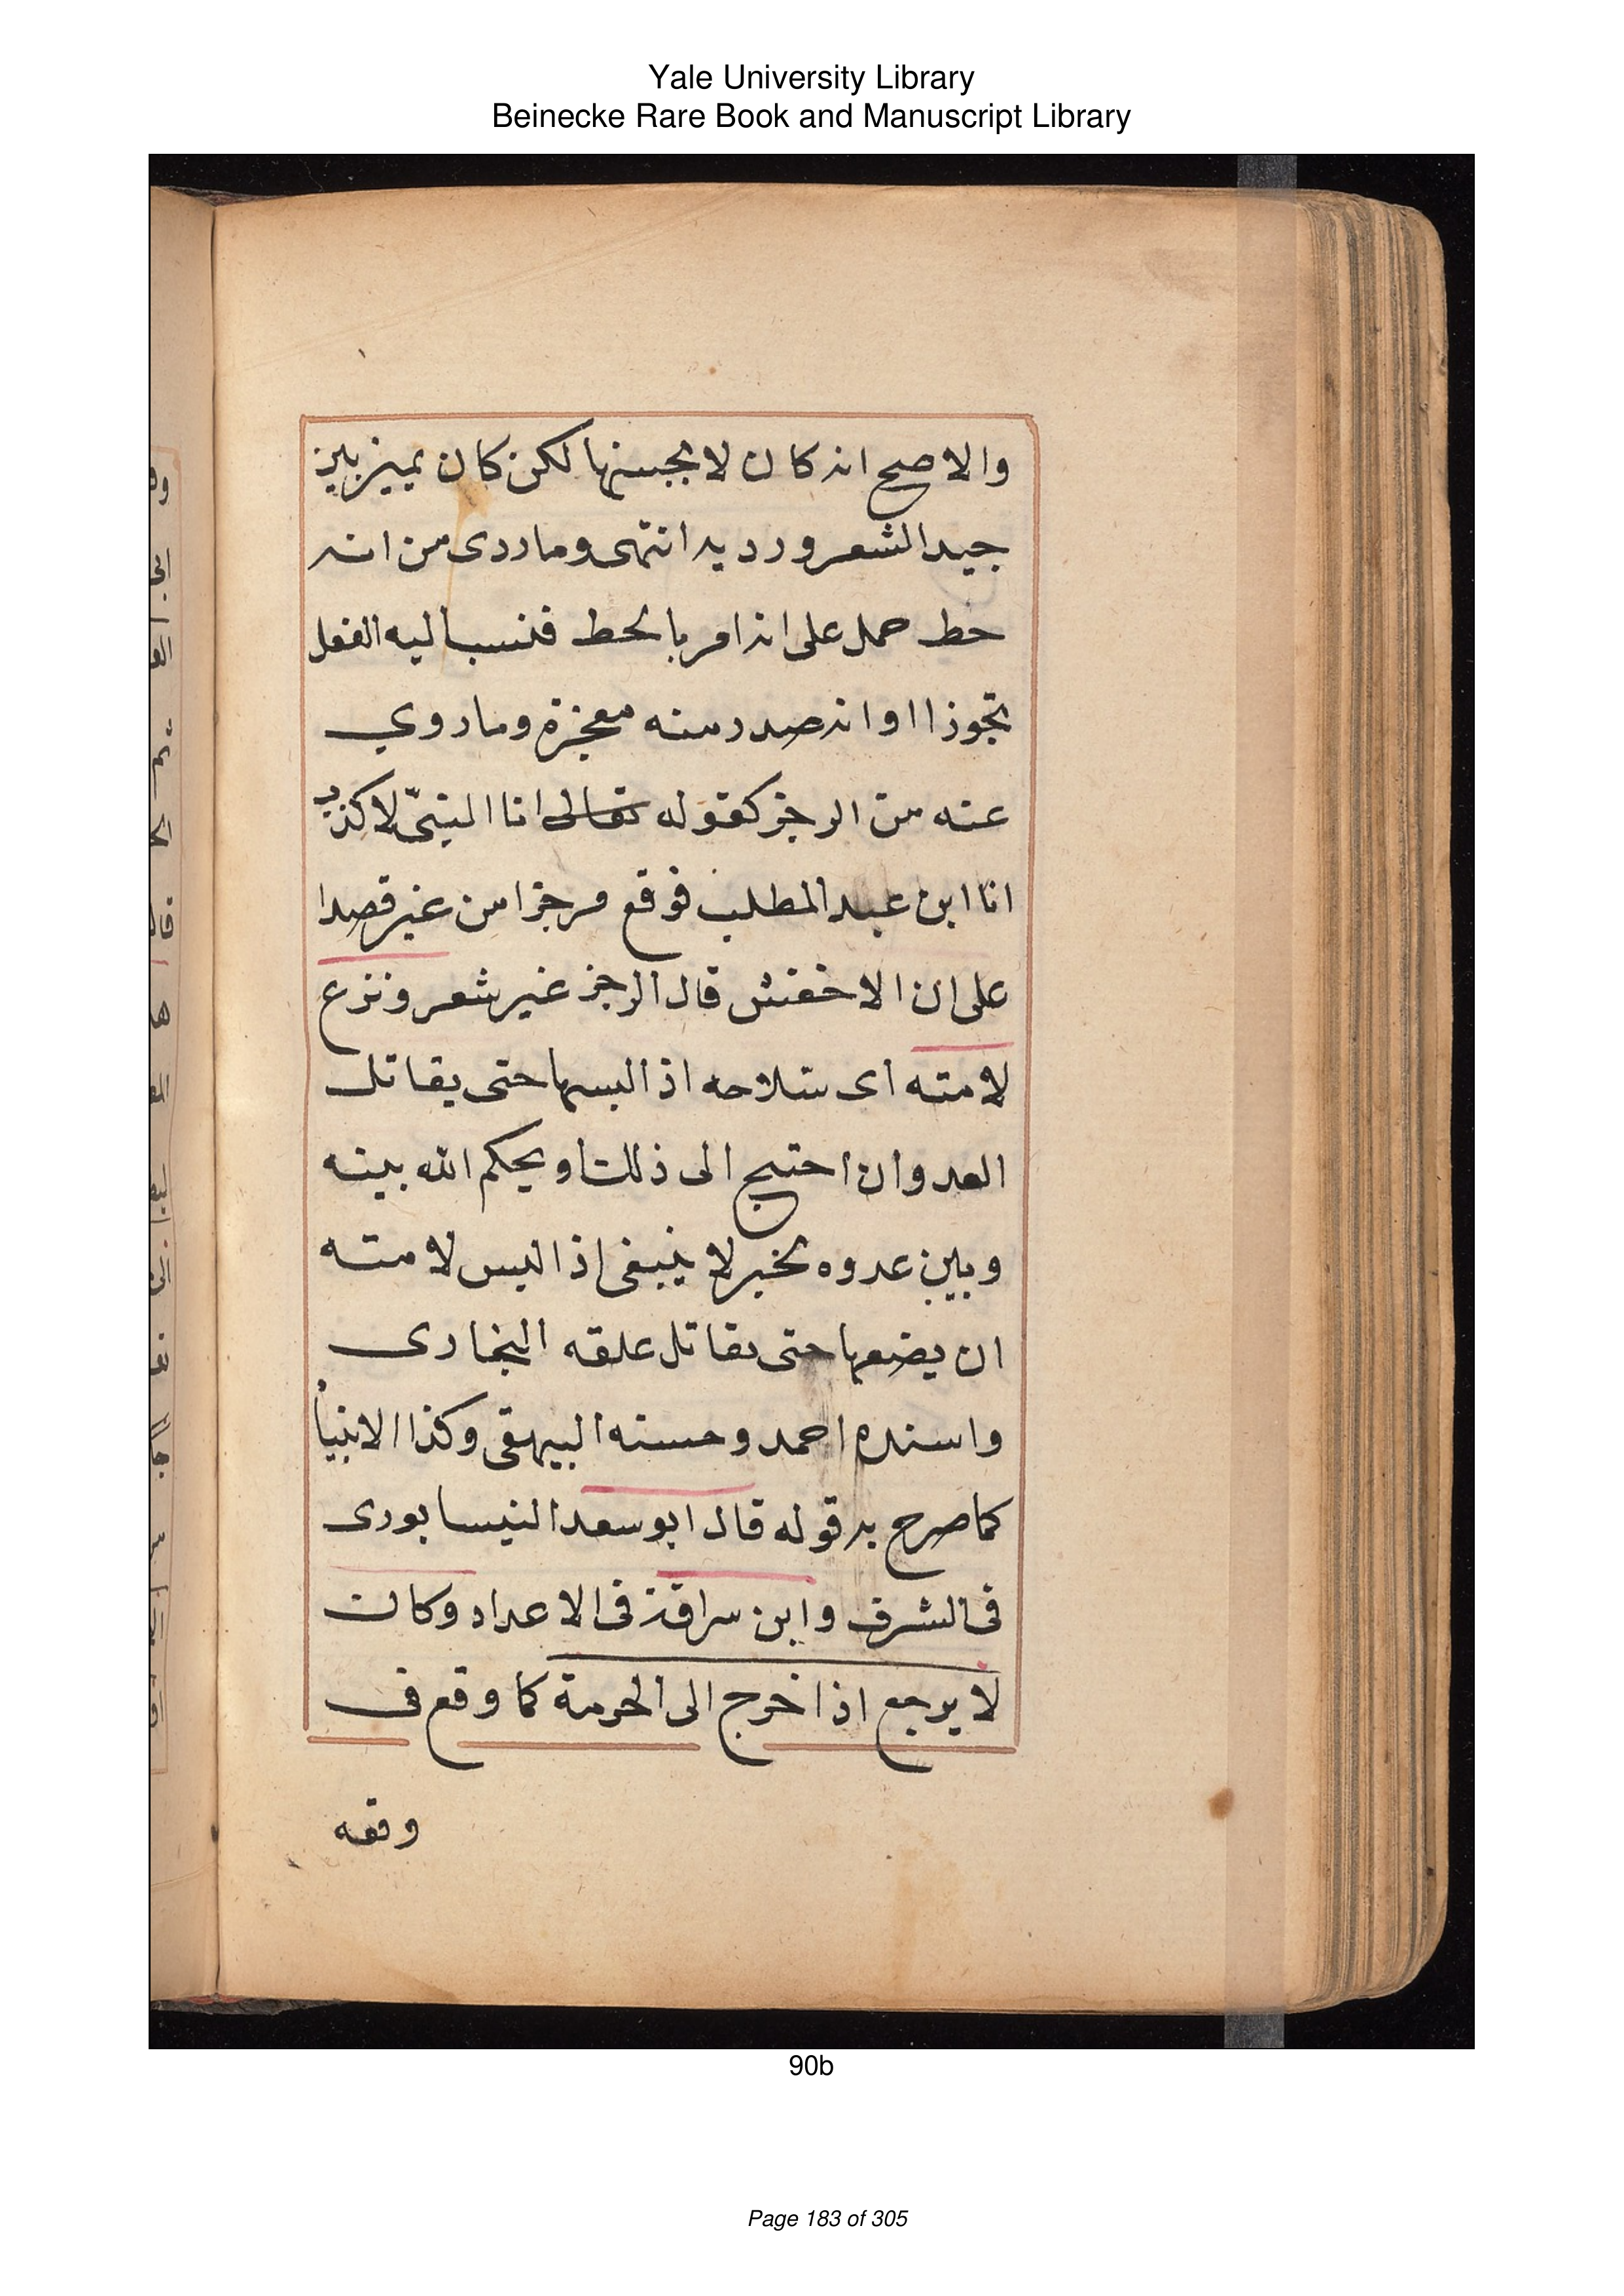 Yale University Library
Beinecke Rare Book and Manuscript Library
والاصح انه كان لا يحسنها لكن كان يميز بين
جيد الشعر ورديه انتهى وما ردى من انه
خط حمل على انه امر بالخط فنسب اليه الفعل
تجوزا او انه صدر منه معجزة وما روي
عنه من الرجز كقوله تعالى انا النبيّ لا كذب
انا ابن عبد المطلب فوقع مرجزا من غير قصدا
على ان الاخفش قال الرجز غير شعر ونزع
لامته اى سلاحه اذا لبسها حتى يقاتل
العدو ان احتيج الى ذلك او يحكم الله بينه
وبين عدوه لخبر لا ينبغى اذا لبس لامته
ان يضعها حتى يقاتل علقه البخارى
واسنده احمد وحسنه البيهقى وكذا الانبيأ
كما صرح به قوله قال ابو سعد النيسابورى
فى الشرف وابن سراقة فى الاعداد وكان
لا يرجع اذا خرج الى الحرمة كما وقع فى
وقعه
90b
Page 183 of 305